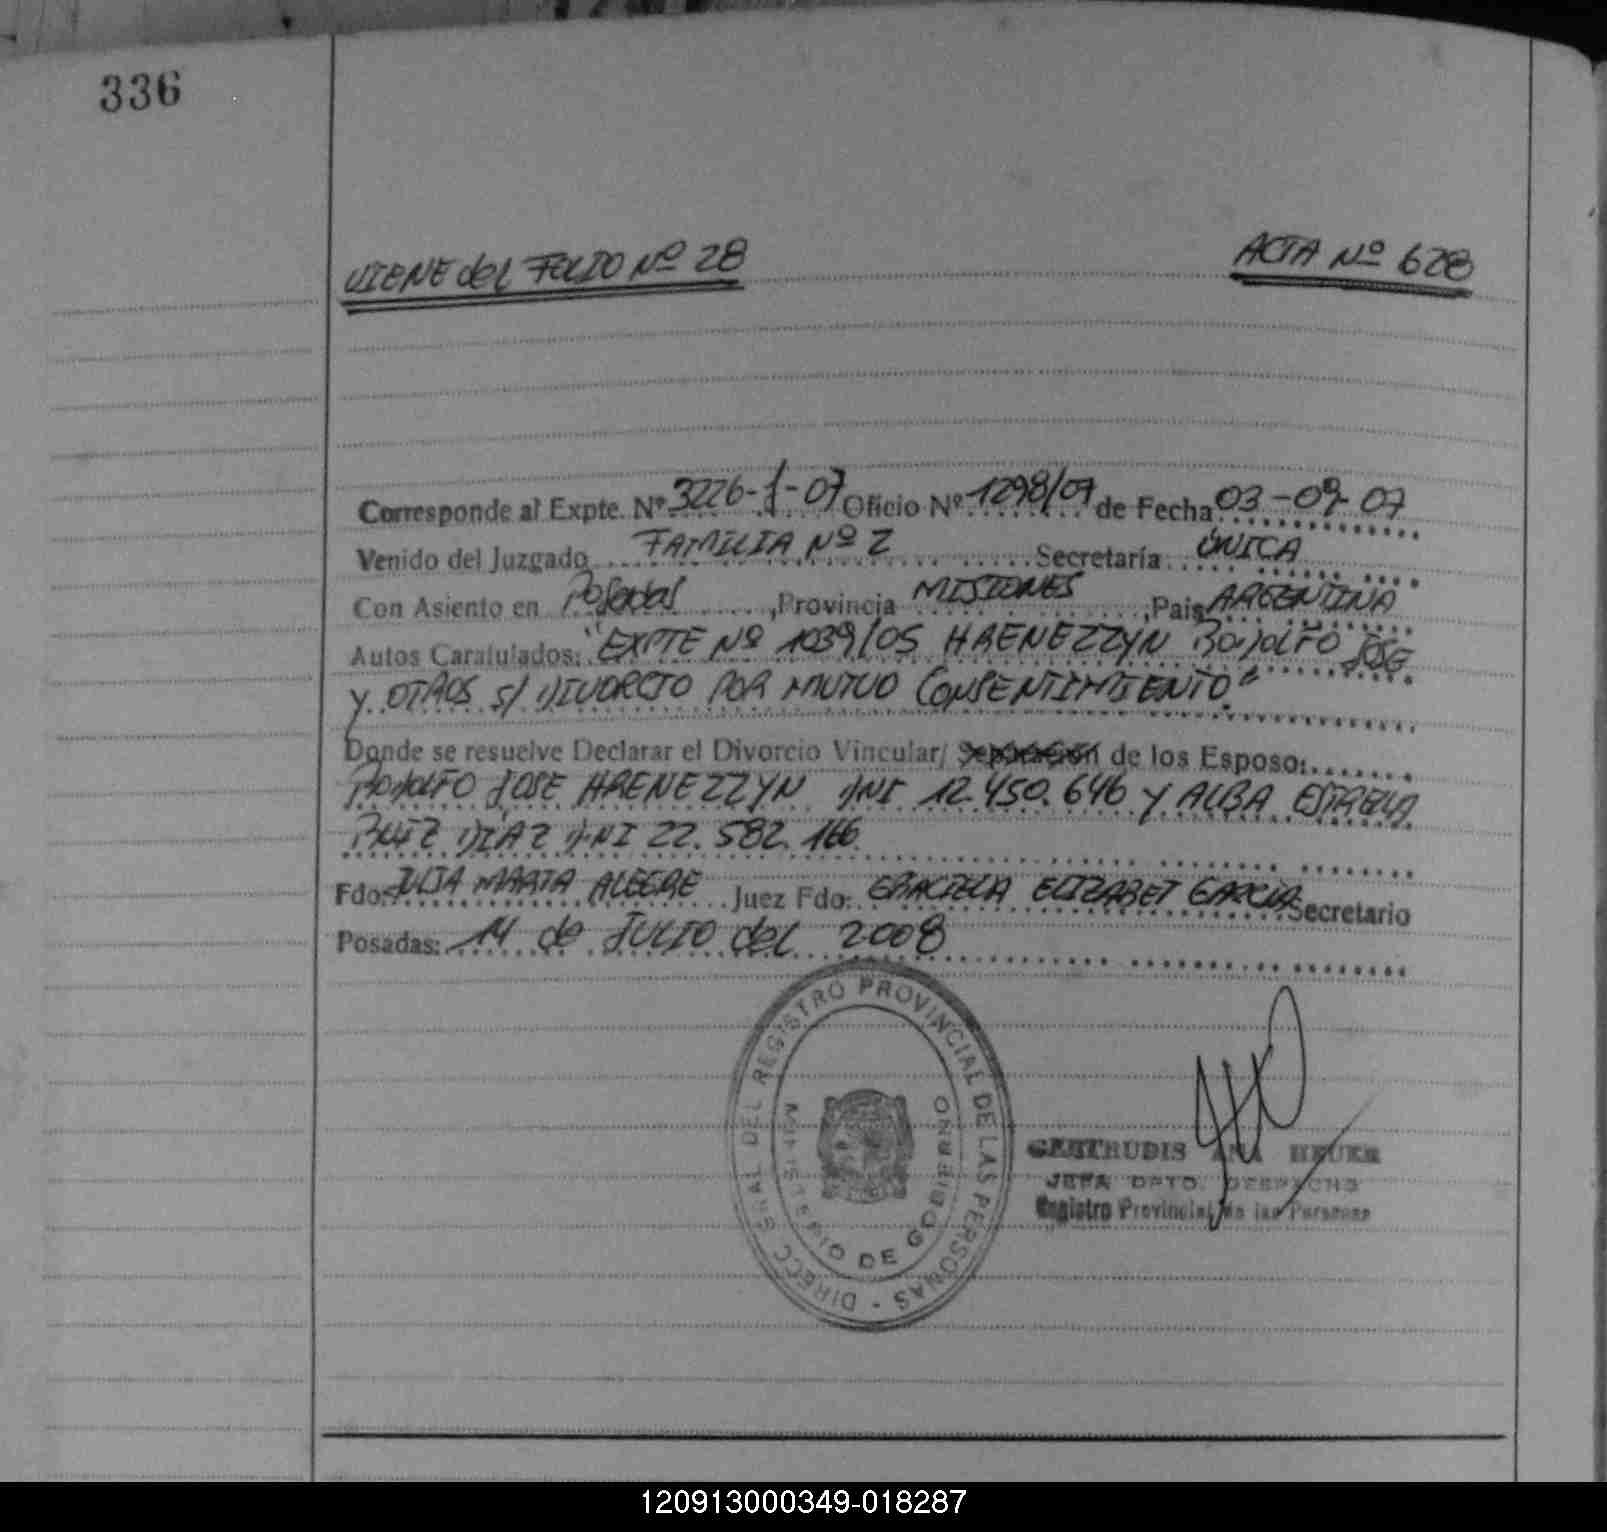 336
VIENE del FOLIO Nº 28
ACTA Nº 628
Corresponde al Expte. Nº 3226-J-07 Oficio Nº 1298/07 de Fecha 03-09-07
Venido del Juzgado FAMILIA Nº 2 Secretaría ÚNICA
Con Asiento en Posadas, Provincia MISIONES, País ARGENTINA
Autos Caratulados: "EXPTE Nº 1039/05 HRENEZZYN RODOLFO JOSE
y OTROS s/ DIVORCIO POR MUTUO CONSENTIMIENTO"
Donde se resuelve Declarar el Divorcio Vincular/ Separación de los Esposo:
RODOLFO JOSE HRENEZZYN DNI 12.450.646 y ALBA ESTRELA
RUIZ DÍAZ DNI 22.582.166
Fdo: JULIA MARTA ALEGRE Juez Fdo: GRACIELA ELIZABET GARCIA Secretario
Posadas: 14 de JULIO del 2008
DIRECC. GRAL DEL REGISTRO PROVINCIAL DE LAS PERSONAS -
MINISTERIO DE GOBIERNO
GERTRUDIS ANA HEUER
JEFA DPTO. DESPACHO
Registro Provincial de las Personas
120913000349-018287